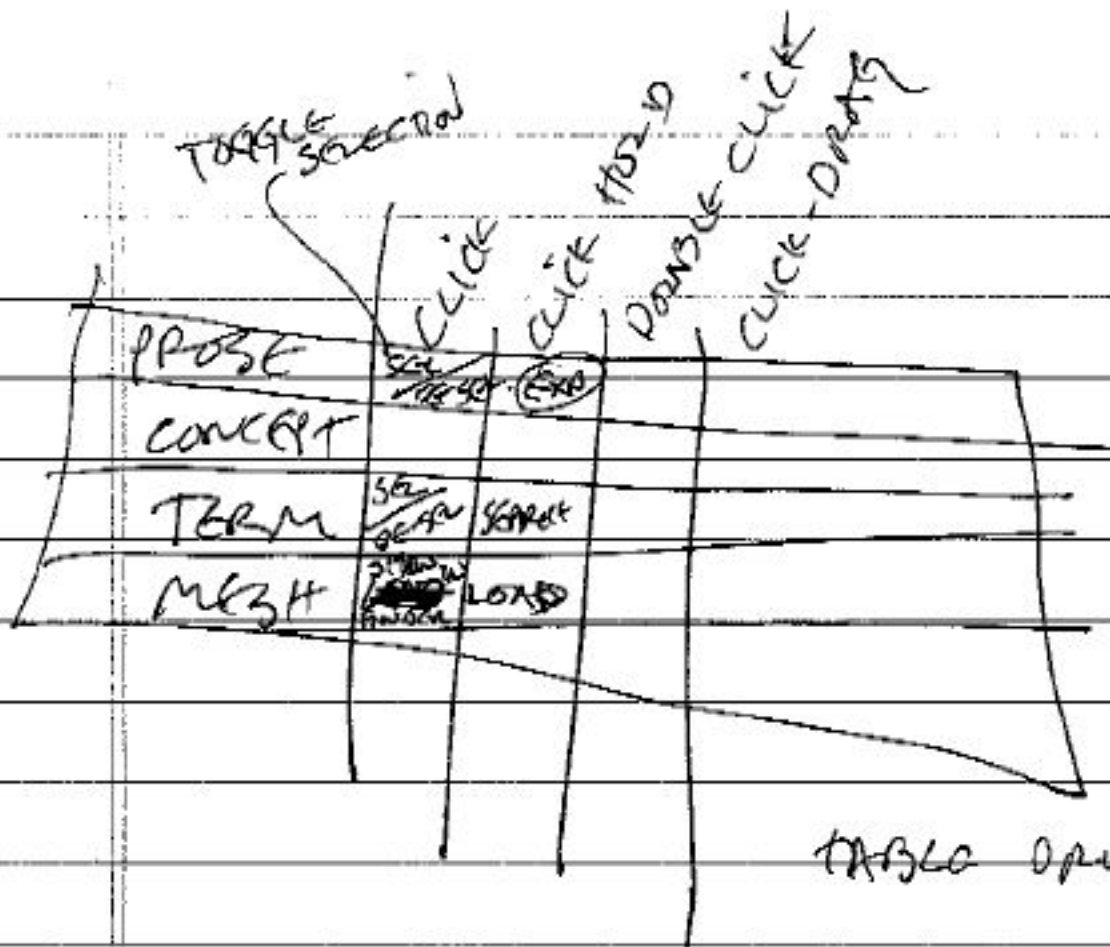 TOGGLE
SELECTION
CLICK
CLICK HOLD
DOUBLE CLICK
CLICK-DRAG
PROBE SEL EXP
CONCEPT
TERM SEL SEARCH
MESH SHOW IN LOAD
TABLE